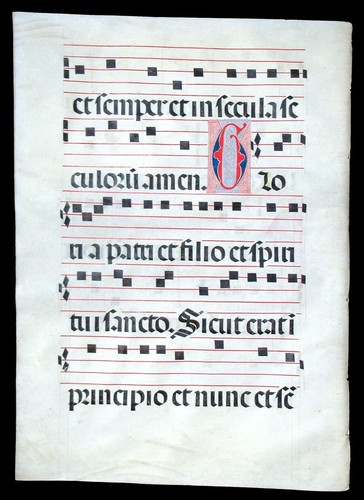 et semper et in secula se
culorũ amen. Glo
ri a patri et filio et spiri
tui sancto. Sicut erat i
principio et nunc et sẽ